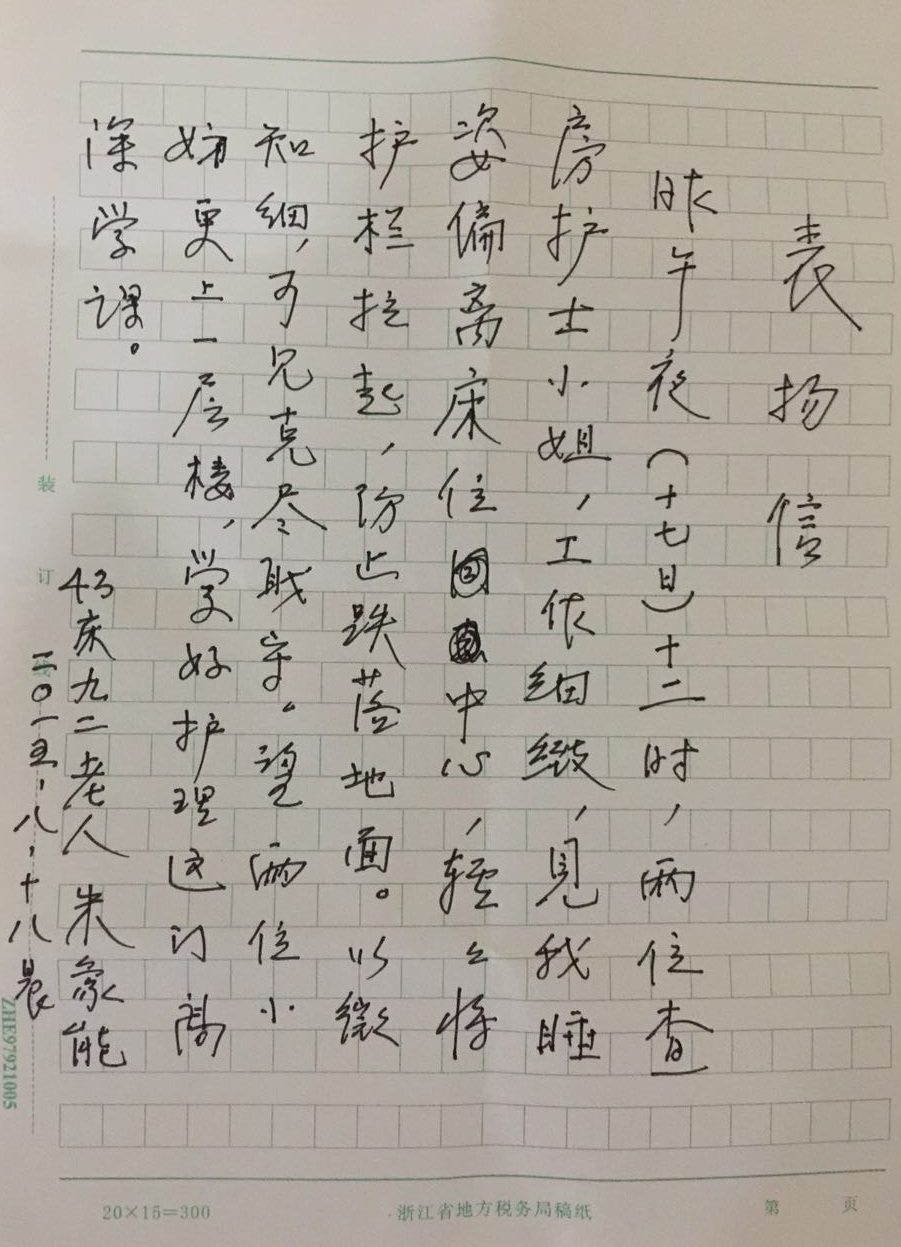 表扬信
昨午夜（十七日）十二时，两位查
房护士小姐，工作细緻，見我睡
姿偏离床位中心，轻么将
护栏拉起，防止跌落地面。以微
知细，可见克尽职守。望两位小
姊更上一层楼，学好护理这门高
深学课。
43床九二老人 朱象能
二〇一五，八，十八晨
装
订
线
ZHE97921005
20×15=300
浙江省地方税务局稿纸
第 页